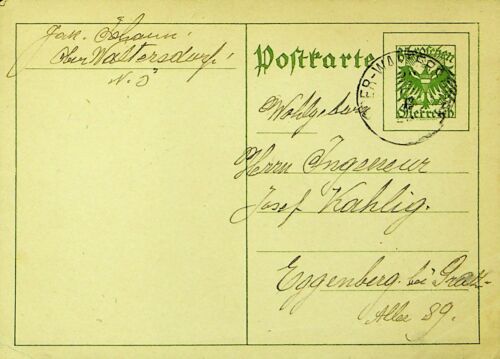 Jak. Johann
Ober Waltersdorf
N. 3
Postkarte
Groschen
Österreich
ER-WALTERS
Wohlgeboren
Herrn Ingeneur
Josef Kahlig.
Eggenberg. bei Graz
Allee 89.